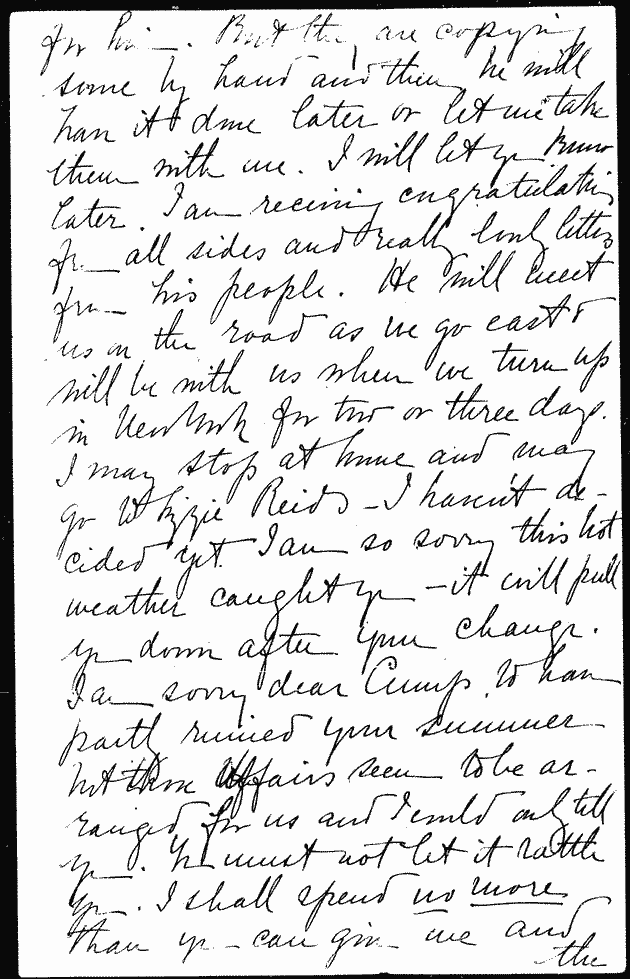 for him. But they are copying
some by hand and then he will
have it done later or let me take
them with me. I will let you know
later. I am receiving congratulations
from all sides and really lovely letters
from his people. He will meet
us on the road as we go east &
will be with us when we turn up
in New York for two or three days.
I may stop at home and may
go to Lizzie Reids – I haven't de-
cided yet. I am so sorry this hot
weather caught you – it will pull
you down after your change.
I am sorry dear Cump, to have
partly ruined your summer
but these affairs seem to be ar-
ranged for us and I could only tell
you. You must not let it rattle
you. I shall spend no more
than you can give me and
the